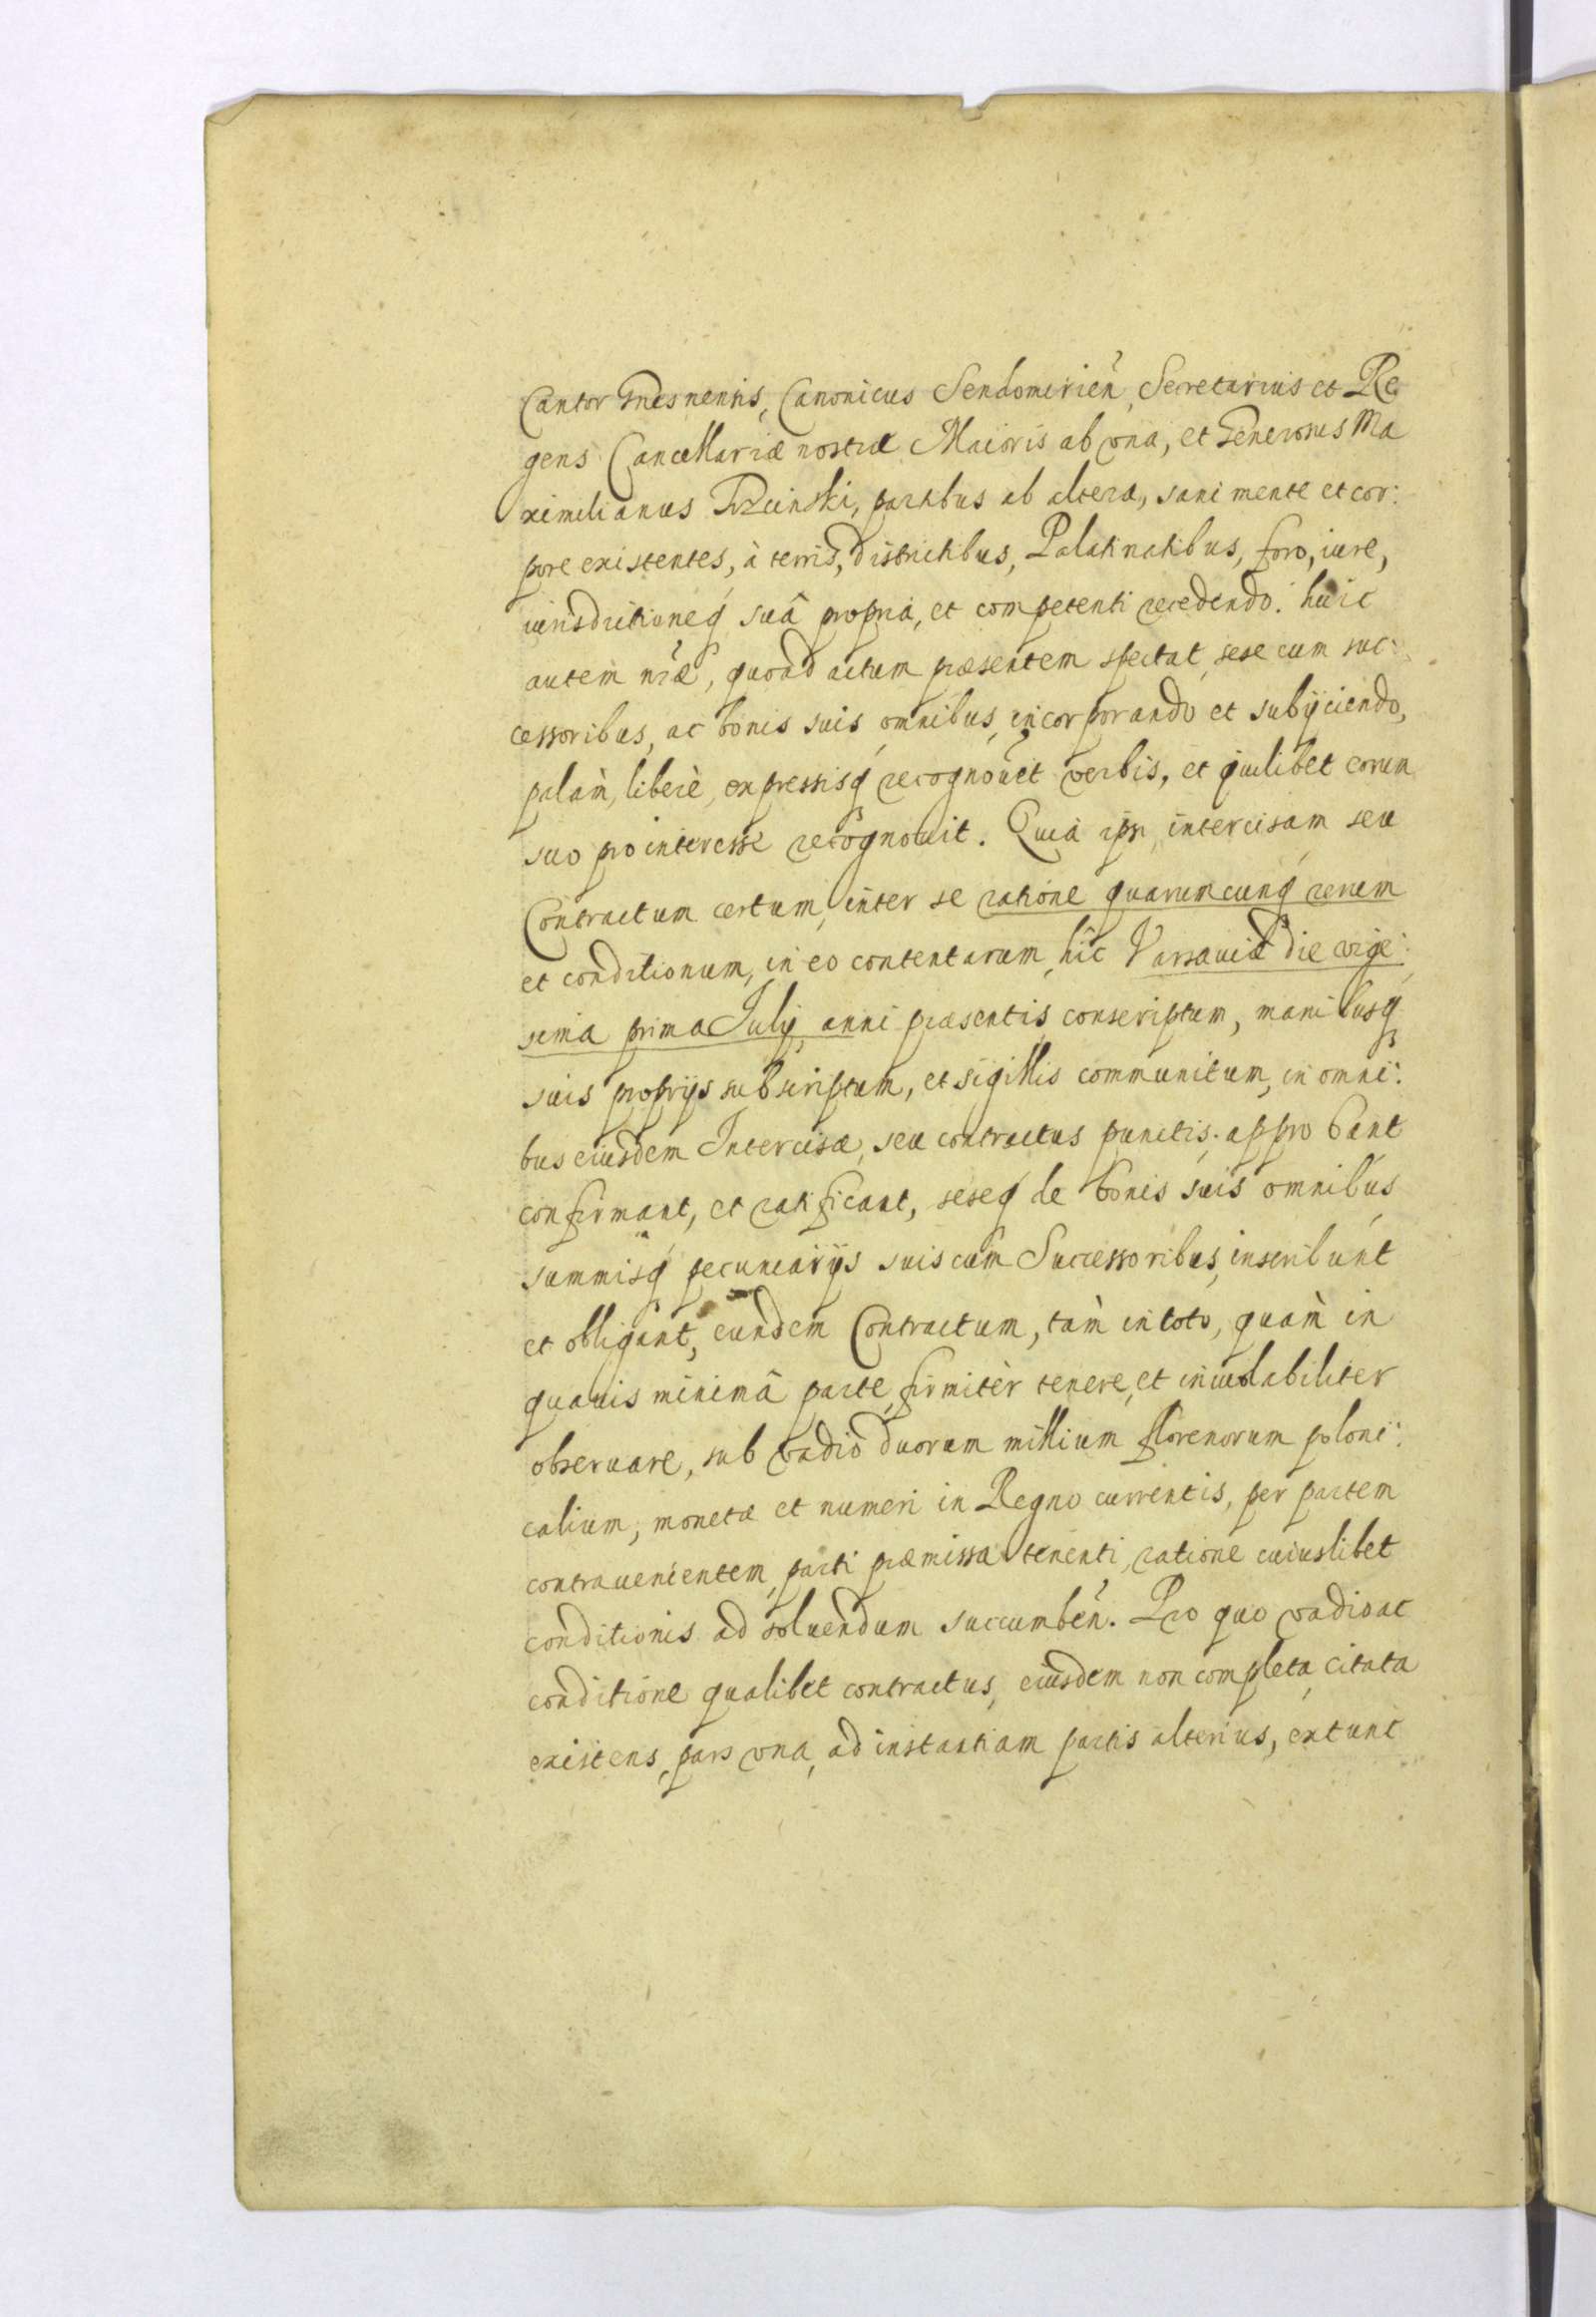 Cantor Gnesnensis, Canonicus Sendomirien̄, Secretarius et Re
gens Cancellariæ nostræ Maioris ab vna, et Generosus Ma
ximilianus partibus ab altera, sani mente et cor:
pore existentes, à terris, districtibus, Palatinatibus, foro, iure,
iurisdictioneq́ suâ propria, et competenti recedendo. huic
autem nr̃æ, quoad actum præsentem spectat, sese cum suc:
cessoribus, ac bonis suis omnibus, incorporando et subijciendo,
palàm, liberè, expressisq́ recognouit verbis, et quilibet eorum
suo pro interesse recognouit. Quia ipsi, intercisam seu
Contractum certum, inter se ratione quarumcunq́ rerum
et conditionum, in eo contentarum, hîc Varsauiæ die vige:
sima prima Iulij, anni præsentis, conscriptum, manibusq́
suis proprijs subscriptum, et sigillis communitum, in omni:
bus eiusdem Intercisæ, seu contractus punctis. approbant
confirmant, et ratificant, seseq́ de bonis suis omnibus
summisq́ pecuniarijs suis cum Successoribus, inscribunt
et obligant, eundem Contractum, tàm in toto, quàm in
quauis minimâ parte, firmitèr tenere, et inuiolabiliter
obseruare, sub vadio duorum millium florenorum poloni:
calium, monetæ et numeri in Regno currentis, per partem
contrauenientem, parti præmissa tenenti, ratione cuiuslibet
conditionis ad soluendum succumben̄. Pro quo vadio ac
conditione qualibet contractus, eiusdem non completa, citata
existens, pars vna, ad instantiam partis alterius, extunc